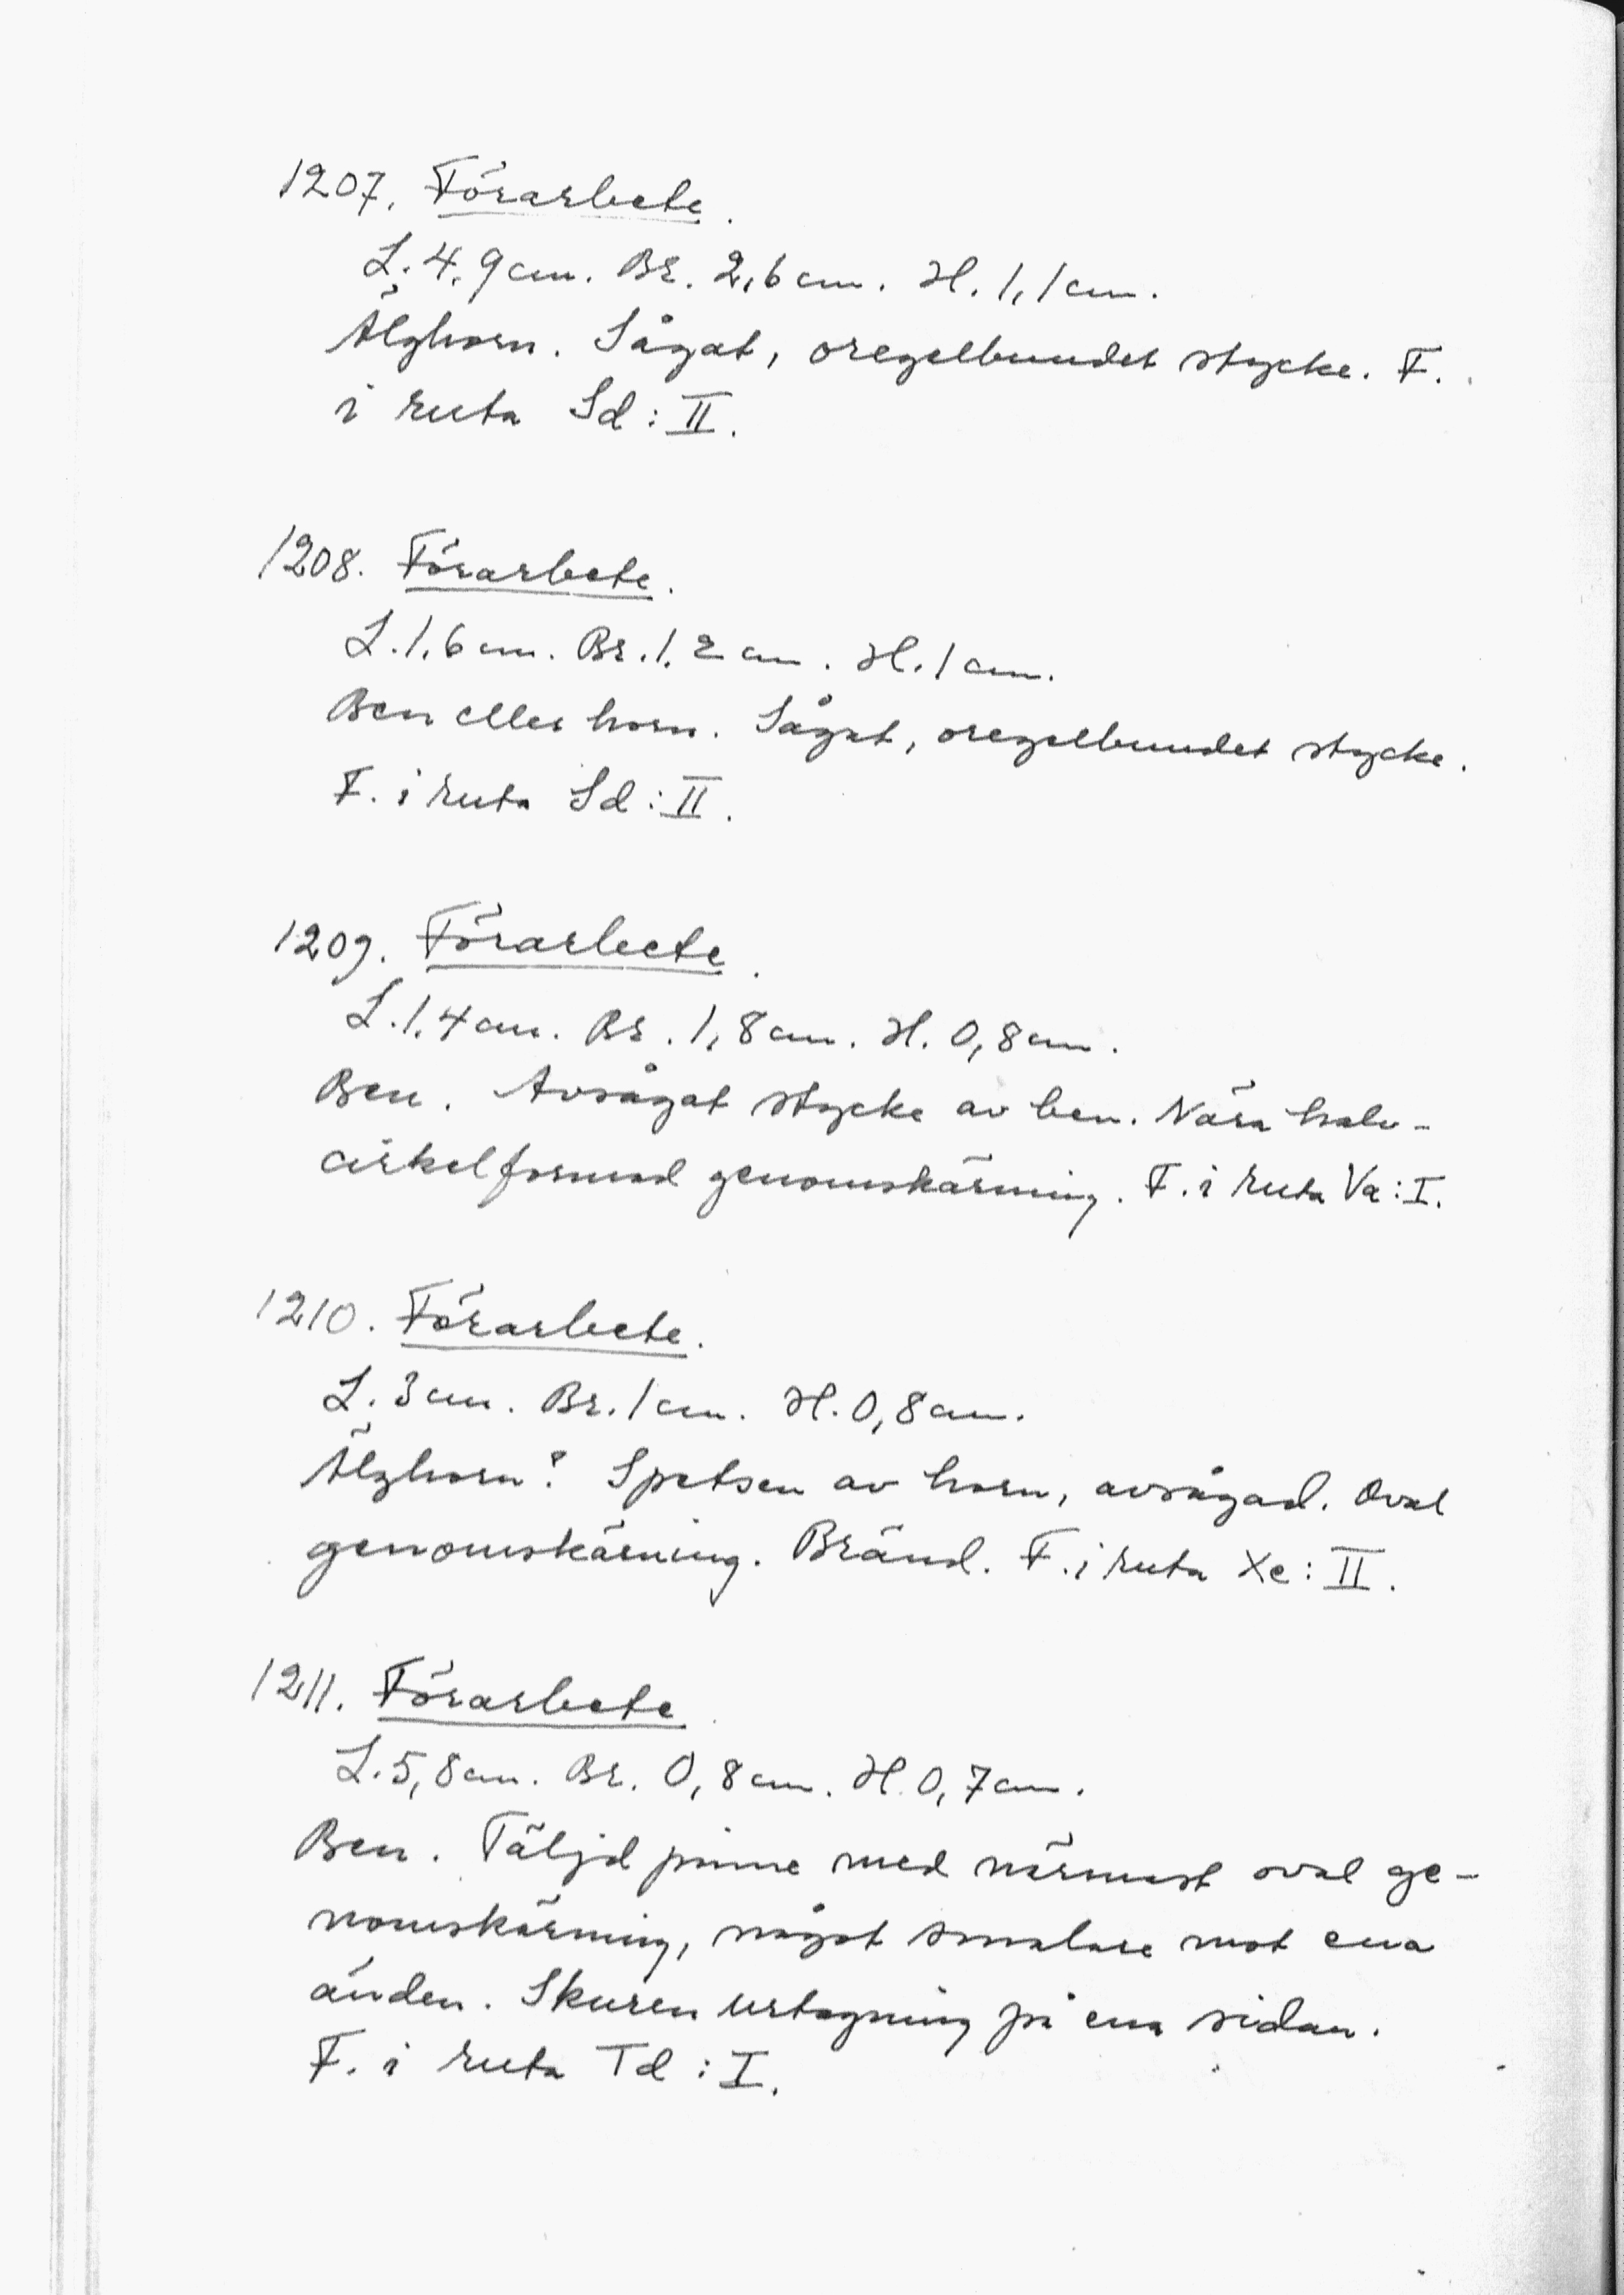 1207. Förarbete.
L. 4,9 cm. Br. 2,6 cm. H. 1,1 cm.
Älghorn. Sågat, oregelbundet stycke. F.
i ruta Sd:II.
1208. Förarbete.
L. 1,6 cm. Br. 1,2 cm. H. 1 cm.
Ben eller horn. Sågat, oregelbundet stycke.
F. i ruta Sd:II.
1209. Förarbete.
L. 1,4 cm. Br. 1,8 cm. H. 0,8 cm.
Ben. Avsågat stycke av ben. Nära halv-
cirkelformad genomskärning. F. i ruta Va:I.
1210. Förarbete.
L. 3 cm. Br. 1 cm. H. 0,8 cm.
Älghorn? Spetsen av horn, avsågad. Oval
genomskärning. Bränd. F. i ruta Xe:II.
1211. Förarbete.
L. 5,8 cm. Br. 0,8 cm. H. 0,7 cm.
Ben. Täljd pinne med närmast oval ge-
nomskärning, något smalare mot ena
änden. Skuren urtagning på ena sidan.
F. i ruta Td:I.